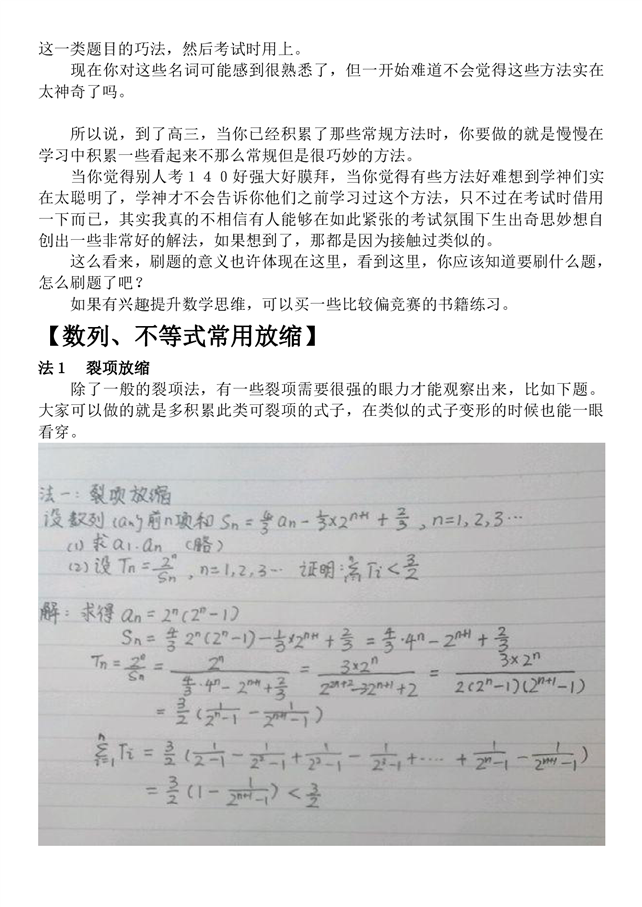 这一类题目的巧法，然后考试时用上。
现在你对这些名词可能感到很熟悉了，但一开始难道不会觉得这些方法实在
太神奇了吗。
所以说，到了高三，当你已经积累了那些常规方法时，你要做的就是慢慢在
学习中积累一些看起来不那么常规但是很巧妙的方法。
当你觉得别人考１４０好强大好膜拜，当你觉得有些方法好难想到学神们实
在太聪明了，学神才不会告诉你他们之前学习过这个方法，只不过在考试时借用
一下而已，其实我真的不相信有人能够在如此紧张的考试氛围下生出奇思妙想自
创出一些非常好的解法，如果想到了，那都是因为接触过类似的。
这么看来，刷题的意义也许体现在这里，看到这里，你应该知道要刷什么题，
怎么刷题了吧？
如果有兴趣提升数学思维，可以买一些比较偏竞赛的书籍练习。
【数列、不等式常用放缩】
法１　裂项放缩
除了一般的裂项法，有一些裂项需要很强的眼力才能观察出来，比如下题。
大家可以做的就是多积累此类可裂项的式子，在类似的式子变形的时候也能一眼
看穿。
法一：裂项放缩
设数列{an}前n项和 Sn = 4/3 an - 1/3×2^(n+1) + 2/3 , n=1,2,3…
(1) 求a1.an （略）
(2) 设 Tn = 2^n/Sn , n=1,2,3… 证明:∑(i=1→n) Ti < 3/2
解：求得 an = 2^n(2^n-1)
Sn = 4/3 2^n(2^n-1) - 1/3×2^(n+1) + 2/3 = 4/3·4^n - 2^(n+1) + 2/3
Tn = 2^n/Sn = 2^n/(4/3·4^n - 2^(n+1) + 2/3) = 3×2^n/(2^(2n+2) - 3·2^(n+1) + 2) = 3×2^n/(2(2^n-1)(2^(n+1)-1))
= 3/2 (1/(2^n-1) - 1/(2^(n+1)-1))
∑(i=1→n) Ti = 3/2 (1/(2-1) - 1/(2²-1) + 1/(2²-1) - 1/(2³-1) + …… + 1/(2^n-1) - 1/(2^(n+1)-1))
= 3/2 (1 - 1/(2^(n+1)-1)) < 3/2